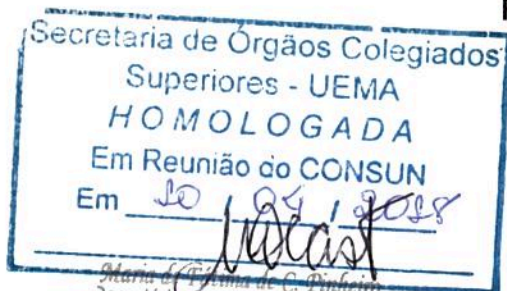 Secretaria de Órgãos Colegiados
Superiores - UEMA
HOMOLOGADA
Em Reunião do CONSUN
Em / / 2018
Maria de Fátima de C. Pinheiro